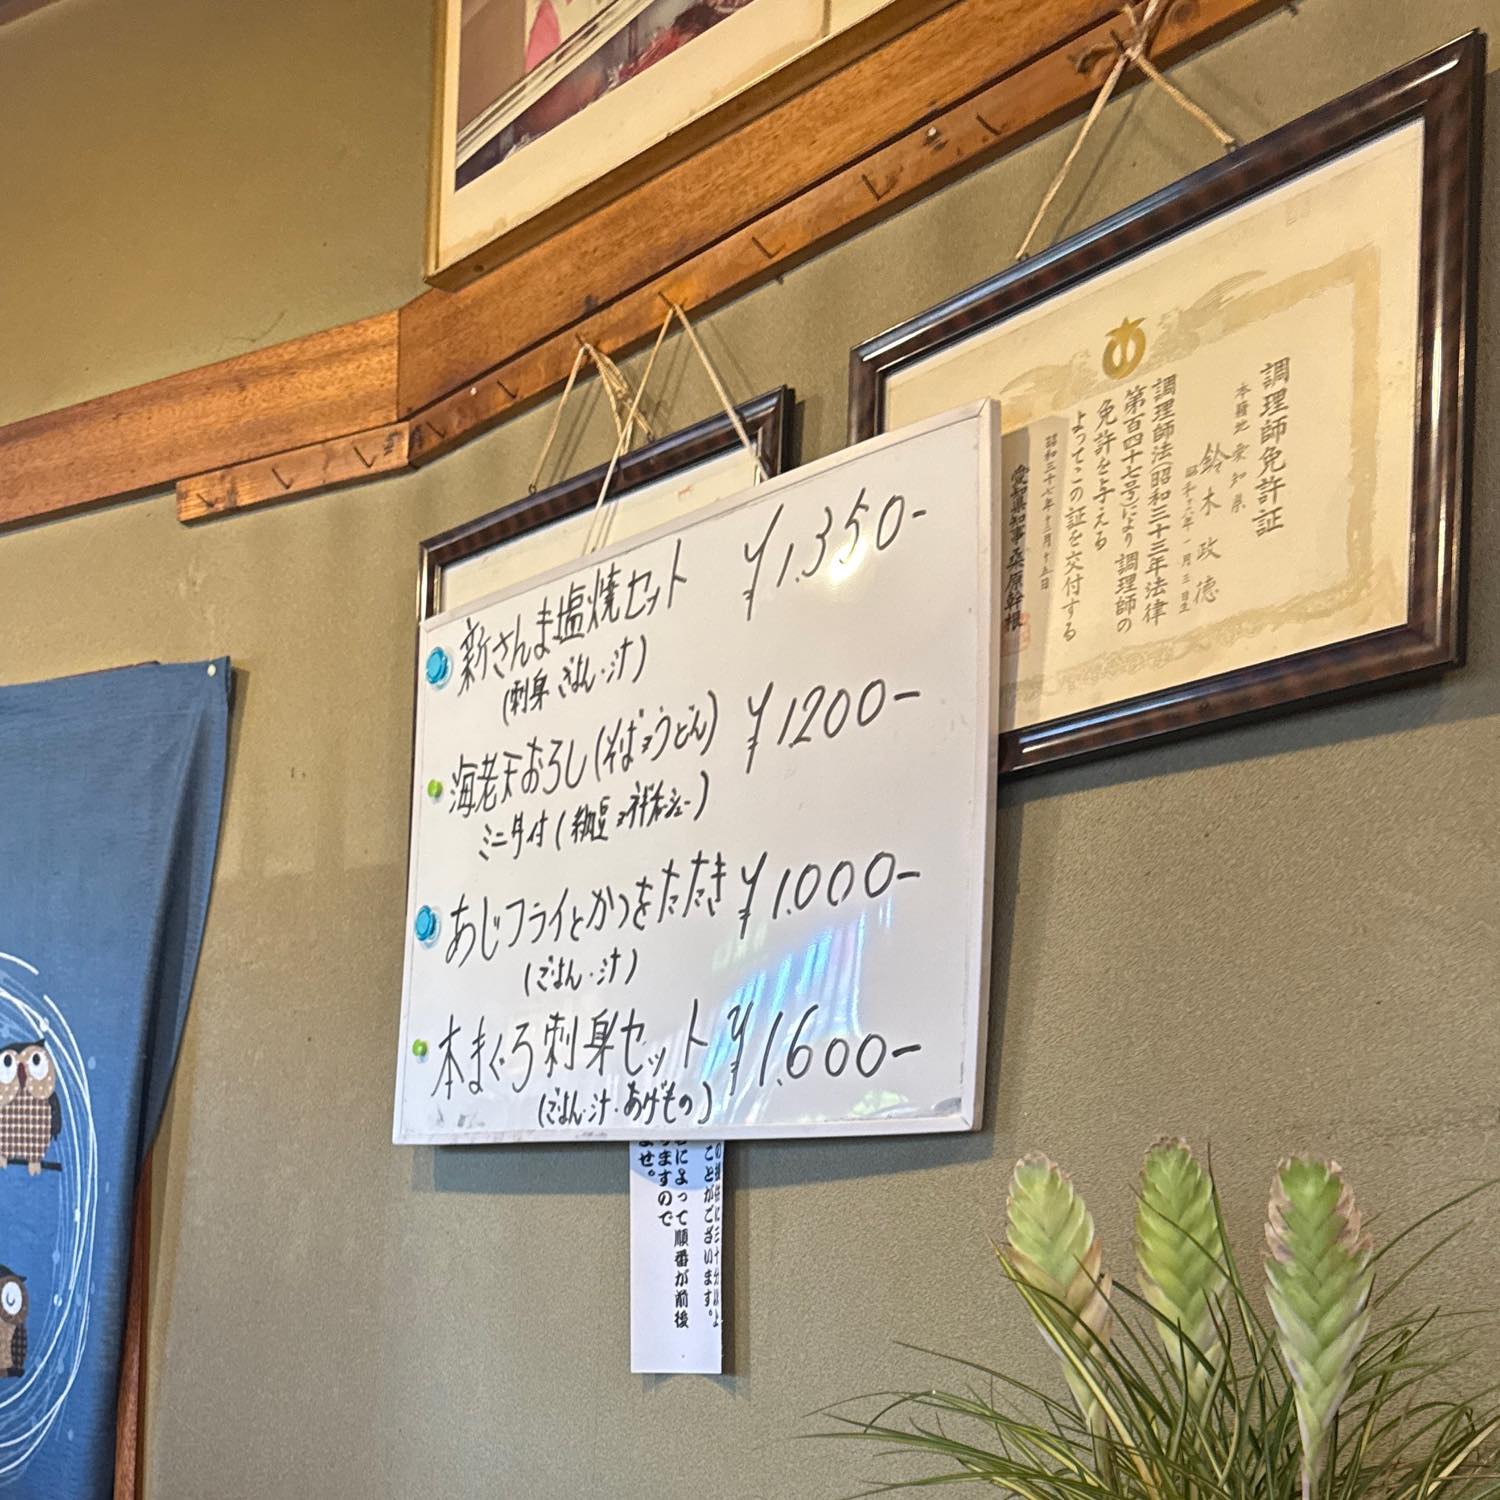 新さんま塩焼セット ¥1.350-
(刺身 ごはん・汁)
海老天おろし(そばorうどん) ¥1200-
ミニ丼付(納豆or
あじフライとかつをたたき ¥1.000-
(ごはん・汁)
本まぐろ刺身セット ¥1.600-
(ごはん・汁・あげもの)
調理師免許証
本籍地 愛知県
鈴木政徳
調理師法(昭和三十三年法律
第百四十七号)により 調理師の
免許を与える
よってこの証を交付する
昭和三十七年十二月十五日
愛知県知事 桑原幹根
ことがございます。
によって順番が前後
ますので
ませ。